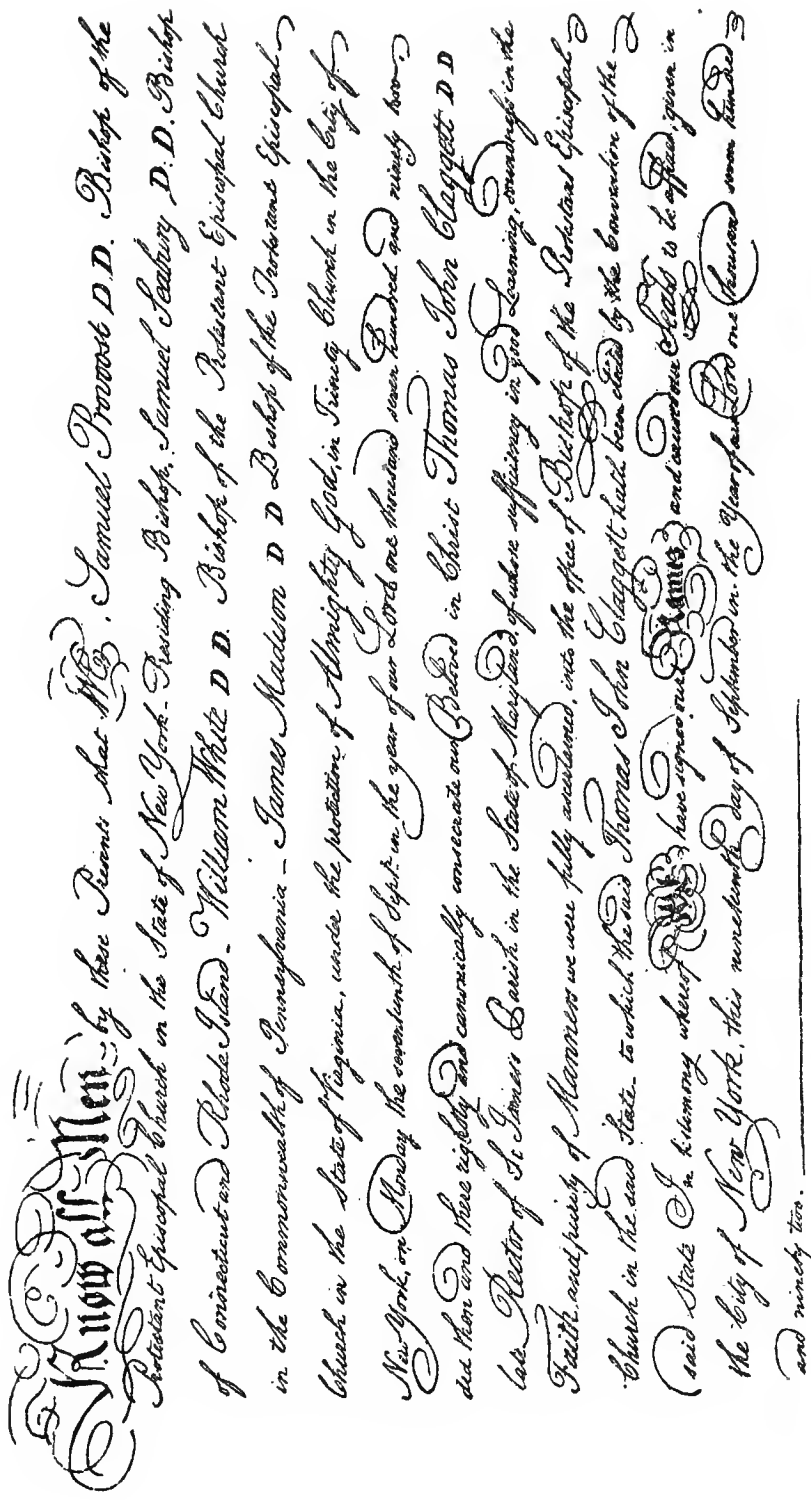 Know all Men by these Presents that We, Samuel Provoost D.D. Bishop of the
Protestant Episcopal Church in the State of New York - Presiding Bishop, Samuel Seabury D.D. Bishop
of Connecticut and Rhode Island - William White D D. Bishop of the Protestant Episcopal Church
in the Commonwealth of Pennsylvania - James Madison D D Bishop of the Protestant Episcopal
Church in the State of Virginia, under the protection of Almighty God, in Trinity Church in the City of
New York, on Monday the seventeenth of Sept. in the year of our Lord one thousand seven hundred and ninety two,
did then and there rightly and canonically consecrate our Beloved in Christ Thomas John Claggett D D
late Rector of St James's Parish in the State of Maryland, of whose sufficiency in good Learning, soundness in the
Faith, and purity of Manners we were fully ascertained, into the office of Bishop of the Protestant Episcopal
Church in the said State - to which the said Thomas John Claggett hath been elected by the Convention of the
said State In testimony whereof We have signed our Names and caused our Seals to be affixed, given in
the City of New York, this nineteenth day of September in the Year of our Lord one thousand seven hundred
and ninety two.